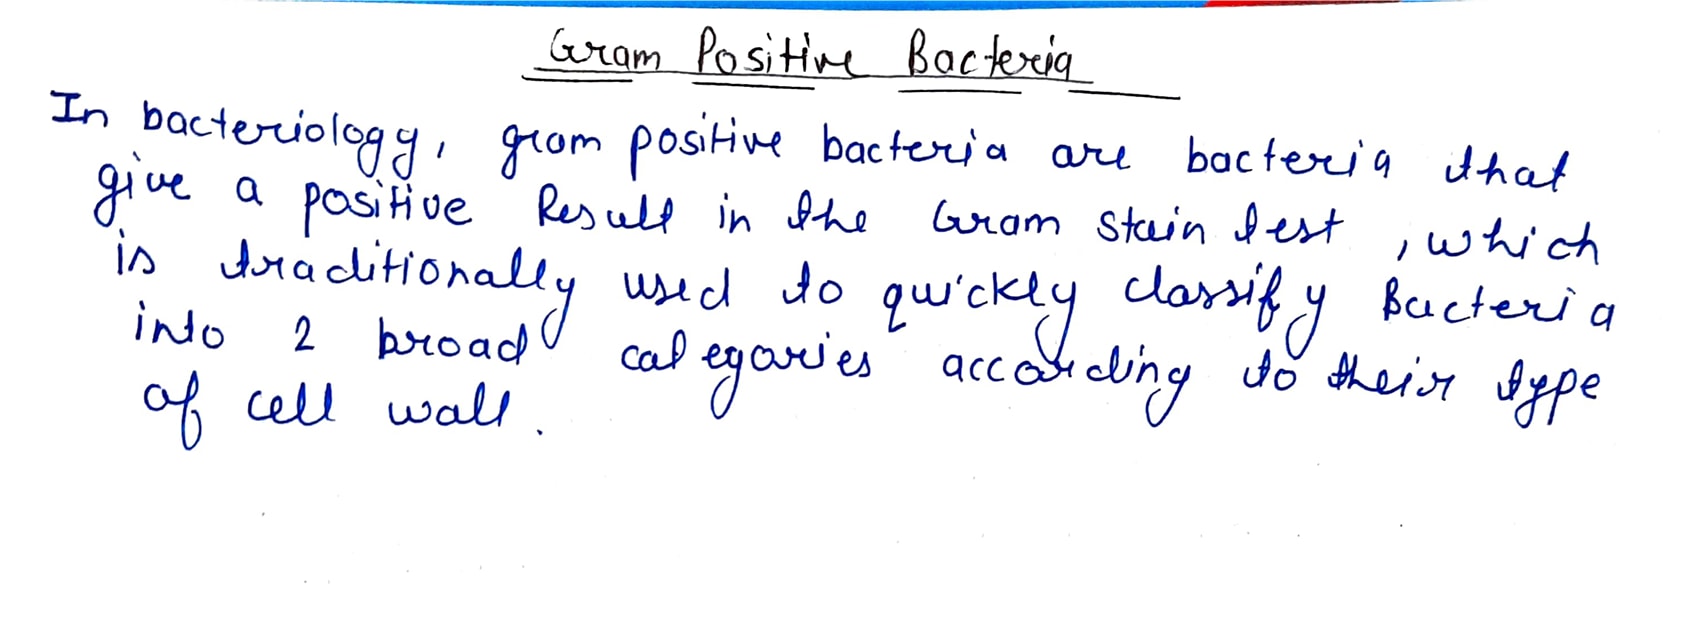 Gram Positive Bacteria
In bacteriology, gram positive bacteria are bacteria that
give a positive Result in the Gram stain test, which
is traditionally used to quickly classify Bacteria
into 2 broad categories according to their type
of cell wall.